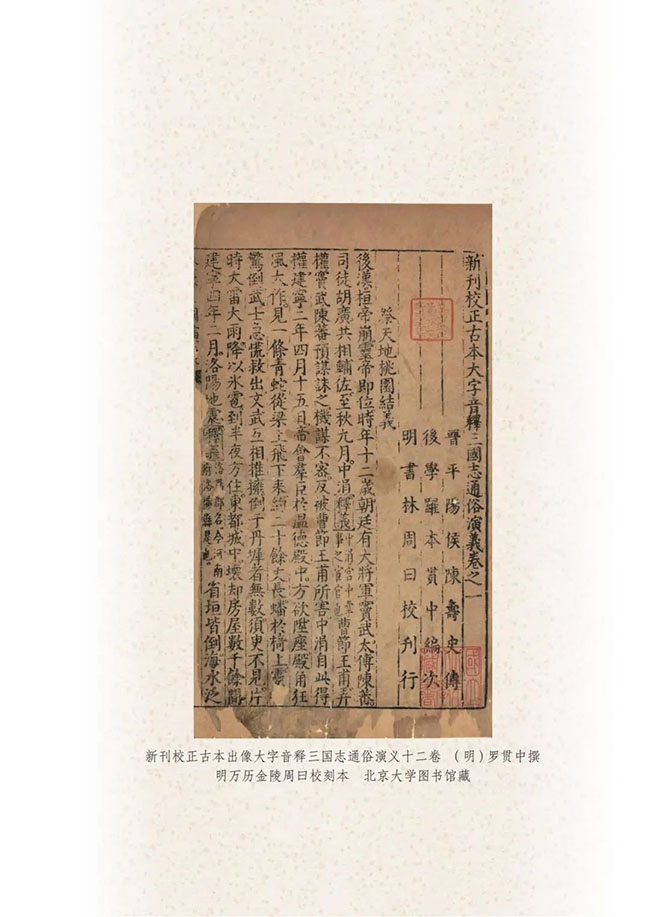 新刊校正古本大字音釋三國志通俗演義卷之一
晉平陽侯陳壽史傳
後學羅本貫中編次
明書林周曰校刊行
祭天地桃園結義
後漢桓帝崩靈帝即位時年十二歲朝廷有大將軍竇武太傅陳蕃
司徒胡廣共相輔佐至秋九月中涓釋義中涓宮中掌事之宦官也曹節王甫弄
權竇武陳蕃預謀誅之機謀不密反被曹節王甫所害中涓自此得
權建寧二年四月十五日帝會羣臣於温德殿中方欲陞座殿角狂
風大作見一條青蛇從梁上飛下來約二十餘丈長蟠於椅上靈
驚倒武士急慌救出文武互相推擁倒于丹墀者無數須臾不見片
時大雷大雨降以氷雹到半夜方住東都城中壞却房屋數千餘間
建寧四年二月洛陽地震釋義洛陽郡名今河南府洛陽縣是也省垣皆倒海水泛
新刊校正古本出像大字音释三国志通俗演义十二卷 (明)罗贯中撰
明万历金陵周曰校刻本 北京大学图书馆藏